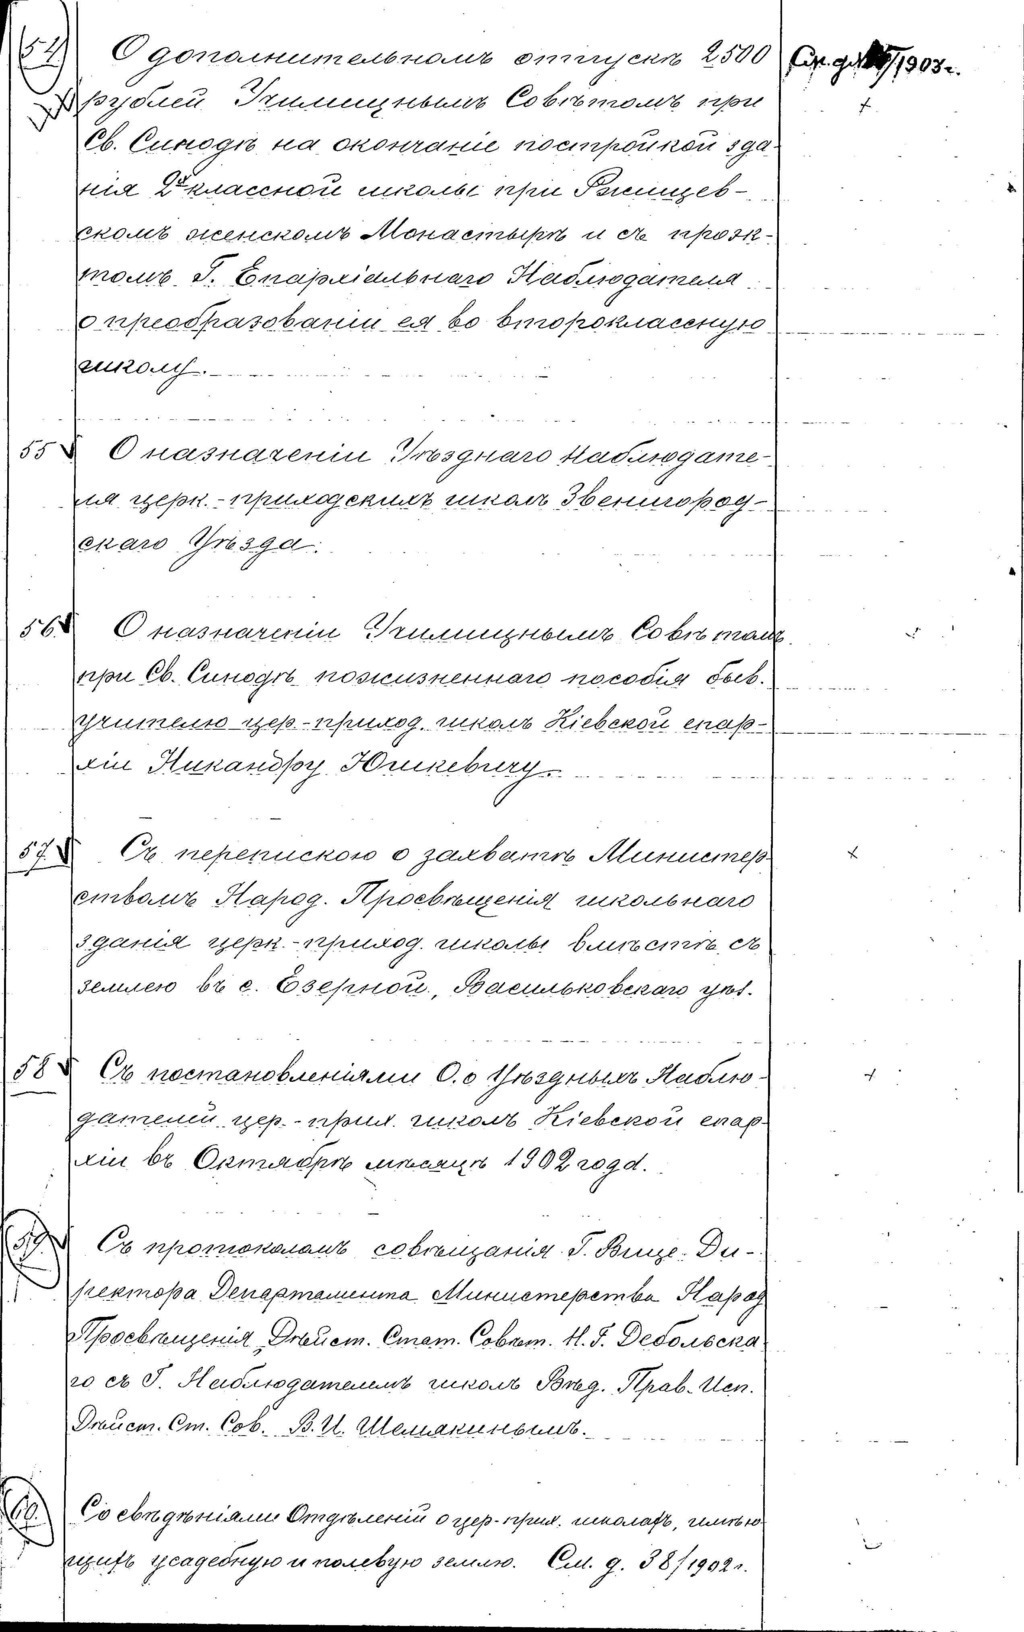 54 О дополнительномъ отпускѣ 2500
рублей Училищнымъ Совѣтомъ при
Св. Синодѣ на окончаніе постройкой зда-
нія 2х классной школы при Ржищев-
скомъ женскомъ Монастырѣ и съ проэк-
томъ Г. Епархіальнаго Наблюдателя
о преобразованіи ея во второклассную
школу.
См. д. /1903 г.
55 О назначеніи Уѣзднаго Наблюдате-
ля церк.-приходскихъ школъ Звенигород-
скаго Уѣзда.
56. О назначеніи Училищнымъ Совѣтомъ
при Св. Синодѣ пожизненнаго пособія быв.
учителю цер-приход. школъ Кіевской епар-
хіи Никандру Юшкевичу.
57. Съ перепискою о захватѣ Министер
ствомъ Народ. Просвѣщенія школьнаго
зданія церк.-приход. школы вмѣстѣ съ
землею въ с. Езерной, Васильковскаго уѣз.
58 Съ постановленіями О.о Уѣздныхъ Наблю-
дателей цер.-прих. школъ Кіевской епар-
хіи въ Октябрѣ мѣсяцѣ 1902 года.
59. Съ протоколомъ совѣщанія Г. Вице-Ди-
ректора Департамента Министерства Народ
Просвѣщенія Дѣйст. Стат. Совѣт. Н. Г. Дебольска
го съ Г. Наблюдателемъ школъ Вѣд. Прав. Исп.
Дѣйст. Ст. Сов. В. И. Шемякинымъ.
60. Со свѣдѣніями Отдѣленій о цер-прих. школахъ, имѣю
щихъ усадебную и полевую землю. См. д. 38/1902 г.